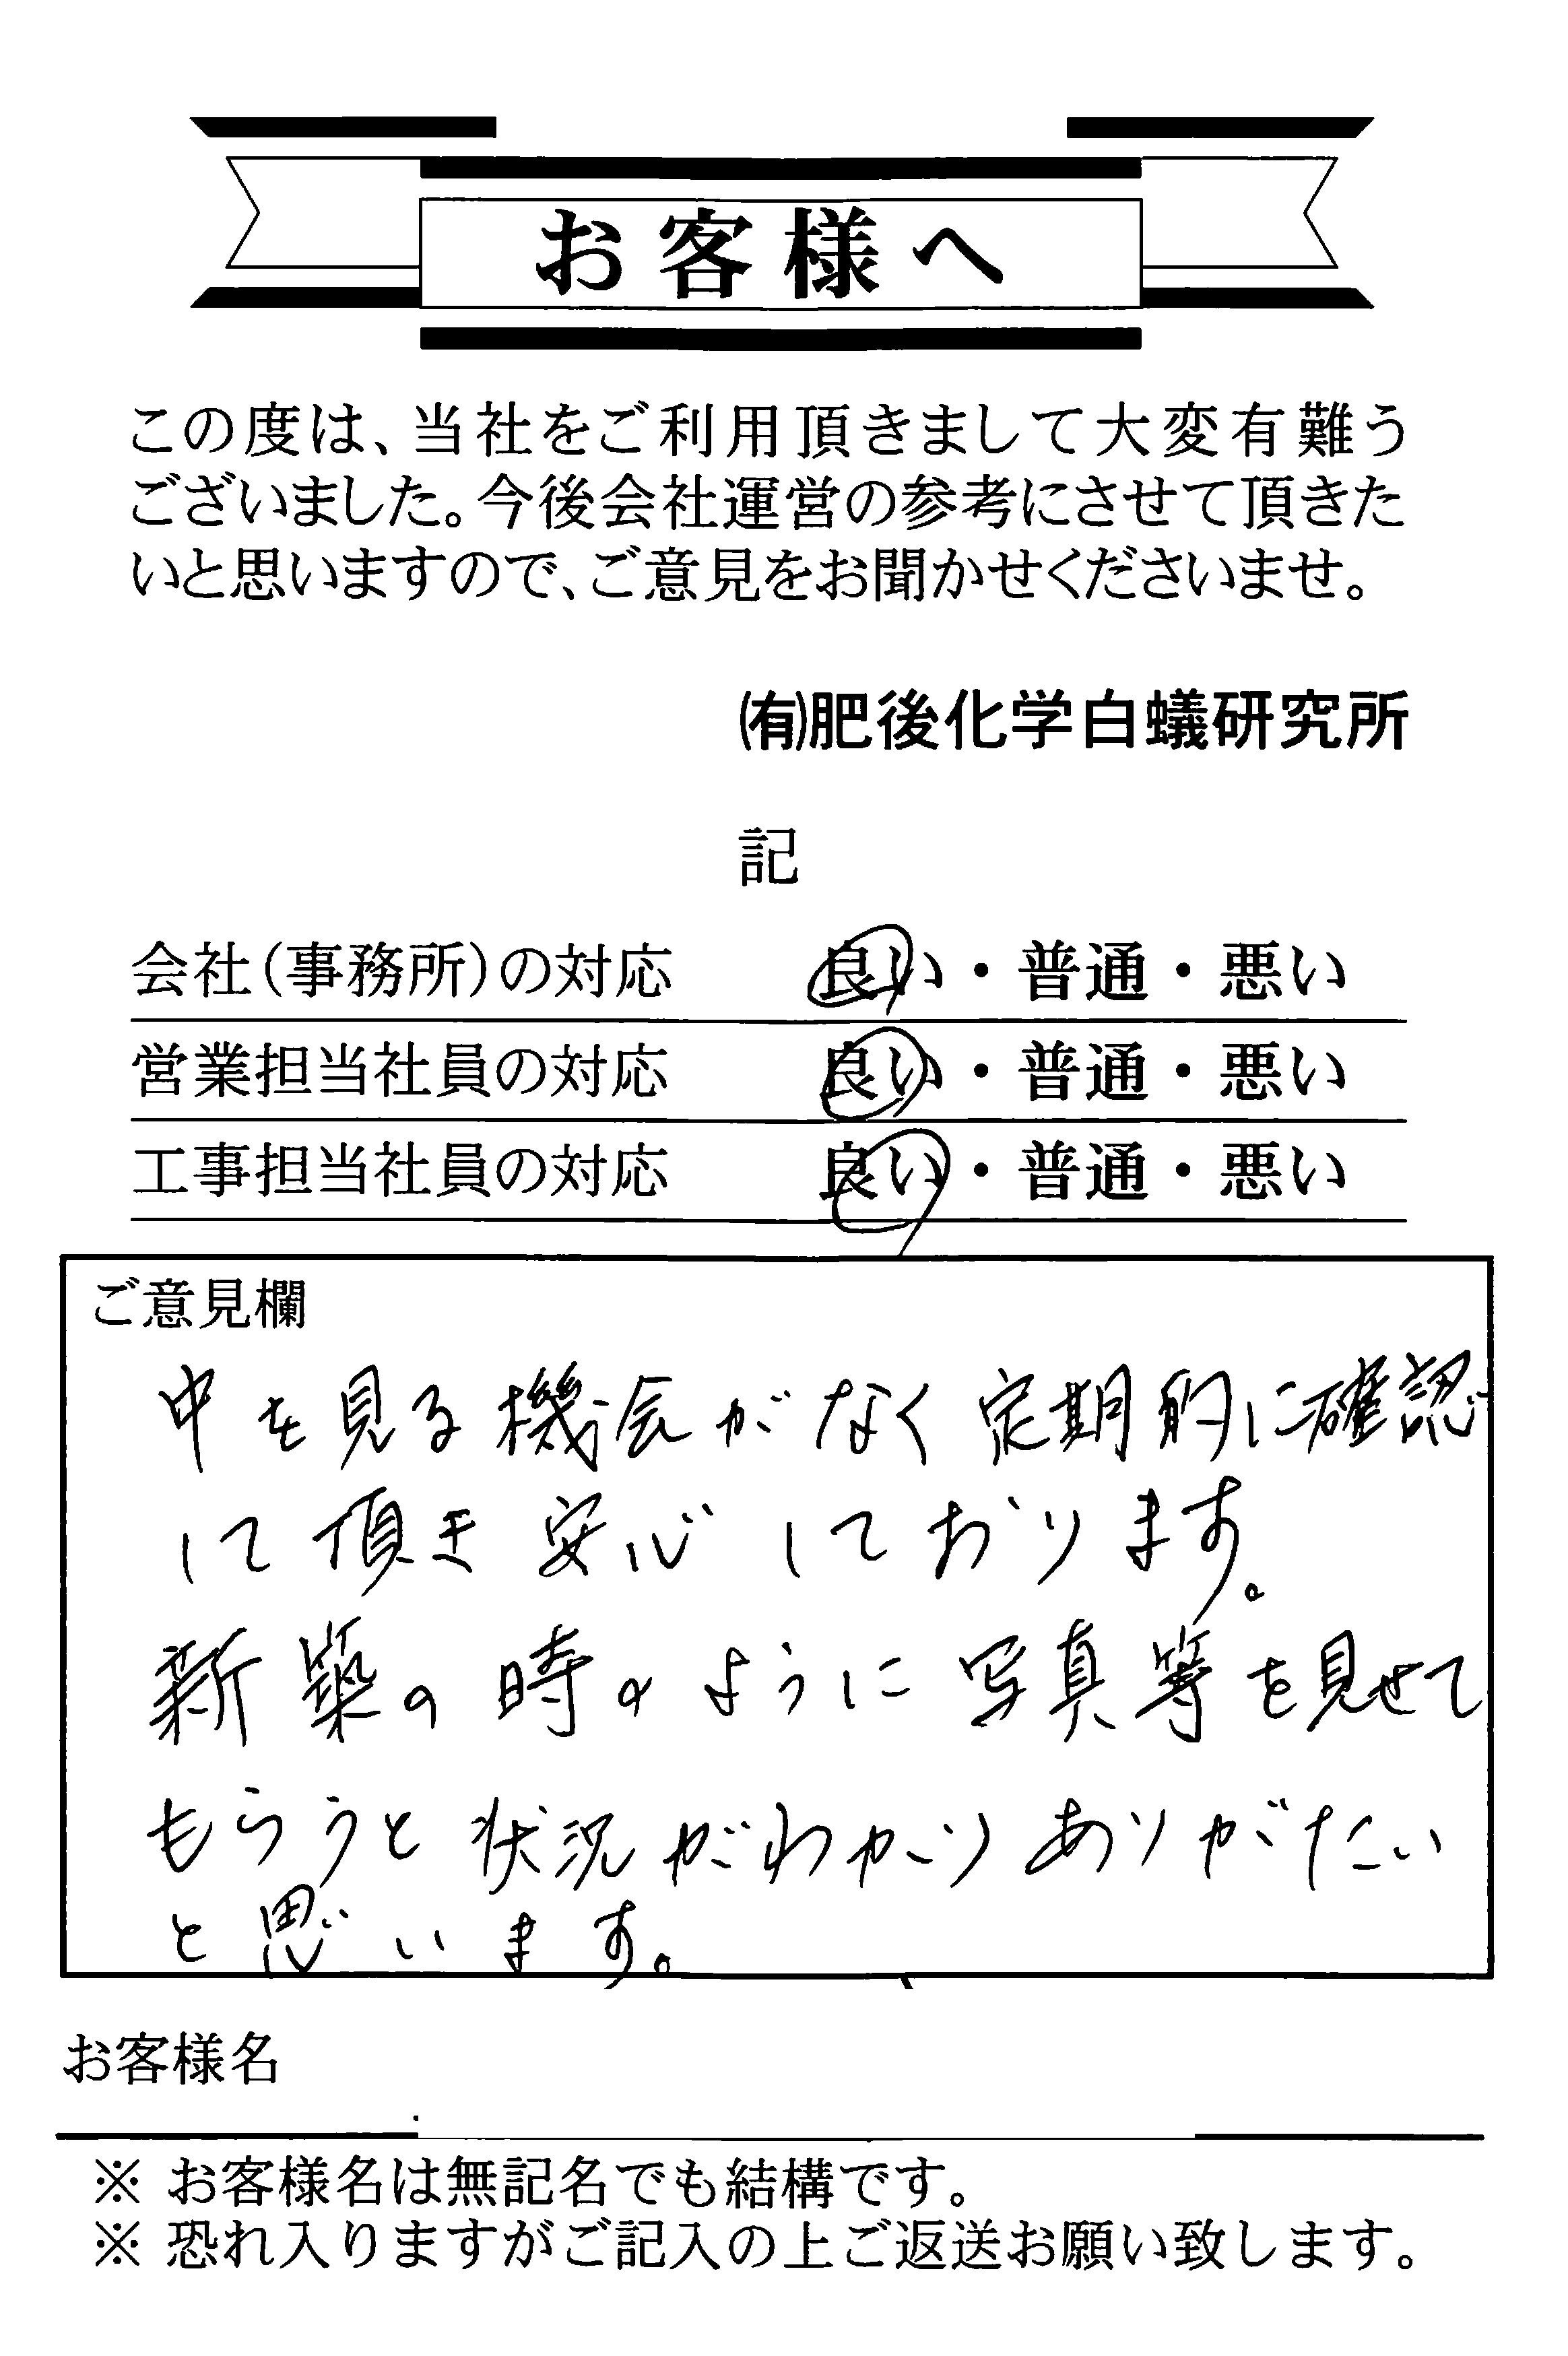 お客様へ
この度は、当社をご利用頂きまして大変有難う
ございました。今後会社運営の参考にさせて頂きた
いと思いますので、ご意見をお聞かせくださいませ。
㈲肥後化学白蟻研究所
記
会社(事務所)の対応 良い・普通・悪い
営業担当社員の対応 良い・普通・悪い
工事担当社員の対応 良い・普通・悪い
ご意見欄
中を見る機会がなく定期的に確認
して頂き安心しております。
新築の時のように写真等を見せて
もらうと状況がわかりありがたい
と思います。
お客様名
※ お客様名は無記名でも結構です。
※ 恐れ入りますがご記入の上ご返送お願い致します。